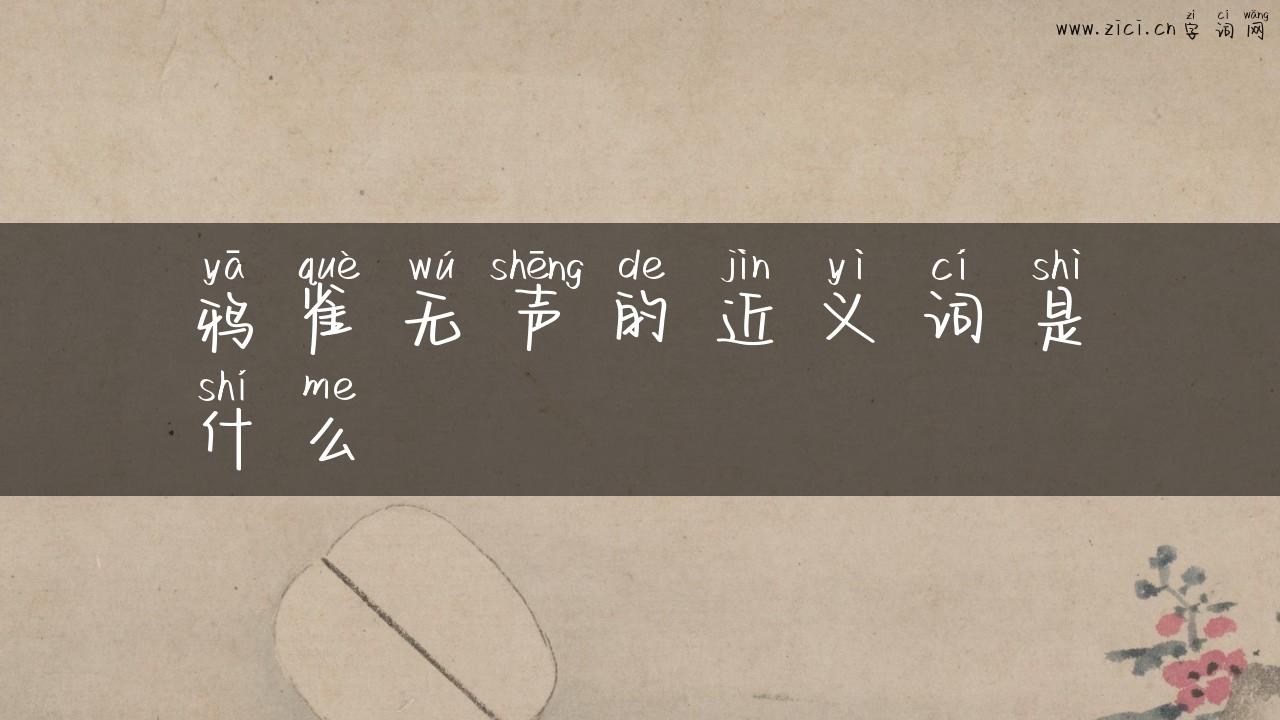 zì cí wǎng
www.zici.cn 字词网
yā què wú shēng de jìn yì cí shì
鸦雀无声的近义词是
shí me
什么